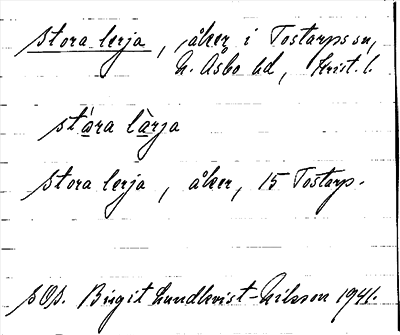 stora lerja, åker i Tostarps sn,
N. Åsbo hd, Krist. l.
stǻra là̱rja
stora lerja, åker, 15 Tostarp.
SOS. Birgit Lundkvist-Nilsson 1941.